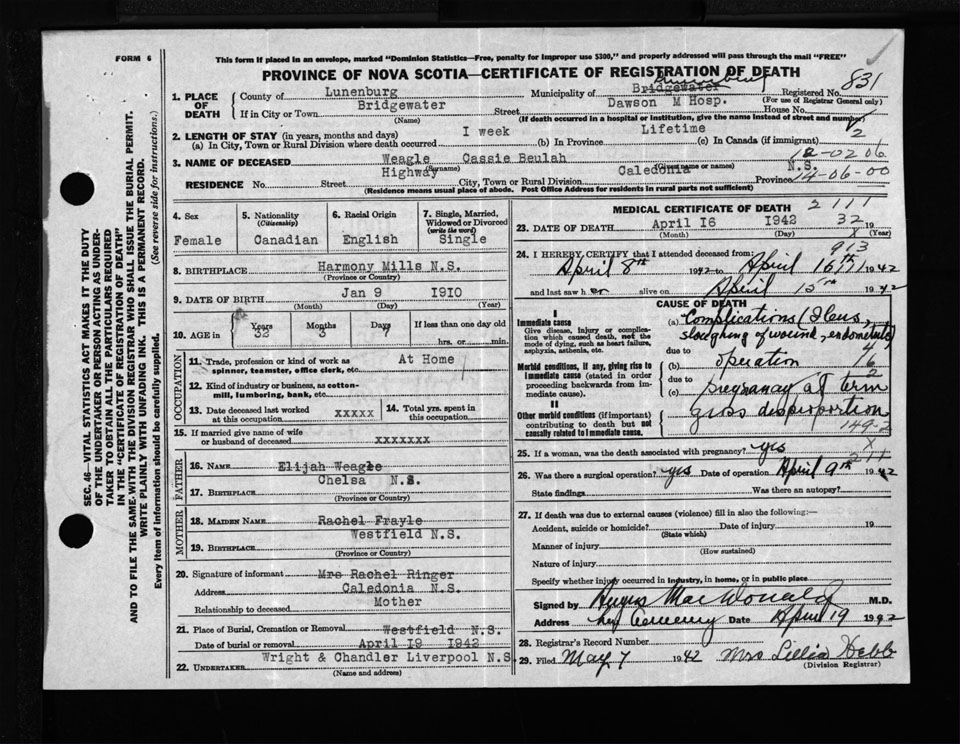 FORM 6
This form if placed in an envelope, marked "Dominion Statistics—Free, penalty for improper use $300," and properly addressed will pass through the mail "FREE"
PROVINCE OF NOVA SCOTIA—CERTIFICATE OF REGISTRATION OF DEATH
SEC. 46—VITAL STATISTICS ACT MAKES IT THE DUTY
OF THE UNDERTAKER OR PERSON ACTING AS UNDER-
TAKER TO OBTAIN ALL THE PARTICULARS REQUIRED
IN THE "CERTIFICATE OF REGISTRATION OF DEATH"
AND TO FILE THE SAME WITH THE DIVISION REGISTRAR WHO SHALL ISSUE THE BURIAL PERMIT.
WRITE PLAINLY WITH UNFADING INK. THIS IS A PERMANENT RECORD.
Every item of information should be carefully supplied. (See reverse side for instructions.)
1. PLACE OF DEATH
County of Lunenburg Municipality of Bridgewater Registered No. 831
(For use of Registrar General only)
If in City or Town Bridgewater Street Dawson M Hosp. House No.
(Name) (If death occurred in a hospital or institution, give the name instead of street and number)
2. LENGTH OF STAY (in years, months and days)
(a) In City, Town or Rural Division where death occurred I week (b) In Province Lifetime (c) In Canada (if immigrant)
2
12-02 06
3. NAME OF DECEASED Weagle Cassie Beulah
(Surname) (Given name or names)
RESIDENCE No. Street Highway City, Town or Rural Division Caledonia Province N.S.
14-06-00
(Residence means usual place of abode. Post Office Address for residents in rural parts not sufficient)
4. Sex Female
5. Nationality (Citizenship) Canadian
6. Racial Origin English
7. Single, Married, Widowed or Divorced (write the word) Single
8. BIRTHPLACE Harmony Mills N.S.
(Province or Country)
9. DATE OF BIRTH Jan 9 1910
(Month) (Day) (Year)
10. AGE in Years 32 Months 3 Days 7 If less than one day old hrs. or min.
OCCUPATION
11. Trade, profession or kind of work as spinner, teamster, office clerk, etc. At Home
12. Kind of industry or business, as cotton-mill, lumbering, bank, etc.
13. Date deceased last worked at this occupation xxxxx
14. Total yrs. spent in this occupation
15. If married give name of wife or husband of deceased xxxxxxx
FATHER
16. NAME Elijah Weagle
17. BIRTHPLACE Chelsa N.S.
(Province or Country)
MOTHER
18. MAIDEN NAME Rachel Frayle
19. BIRTHPLACE Westfield N.S.
(Province or Country)
20. Signature of informant Mrs Rachel Ringer
Address Caledonia N.S.
Relationship to deceased Mother
21. Place of Burial, Cremation or Removal Westfield N.S.
Date of burial or removal April I9 1942
22. UNDERTAKER Wright & Chandler Liverpool N.S.
(Name and address)
MEDICAL CERTIFICATE OF DEATH 2111
23. DATE OF DEATH April I6 I942 32 19
(Month) (Day) (Year)
913
24. I HEREBY CERTIFY that I attended deceased from:
April 8th 1942 to April 16th 1942
and last saw her alive on April 15th 1942
CAUSE OF DEATH
I
Immediate cause
Give disease, injury or complication which caused death, not the mode of dying, such as heart failure, asphyxia, asthenia, etc.
(a) Complications (Ileus, sloughing of wound, endometritis)
due to
Morbid conditions, if any, giving rise to immediate cause (stated in order proceeding backwards from immediate cause).
(b) operation
due to
(c) pregnancy at term
II
Other morbid conditions (if important) contributing to death but not causally related to immediate cause.
gross disproportion
149-2
25. If a woman, was the death associated with pregnancy? yes X
211
26. Was there a surgical operation? yes Date of operation April 9th 1942
State findings Was there an autopsy?
27. If death was due to external causes (violence) fill in also the following:—
Accident, suicide or homicide? Date of injury 19
(State which)
Manner of injury
(How sustained)
Nature of injury
Specify whether injury occurred in industry, in home, or in public place
Signed by MacDonald M.D.
Address Date April 19 1942
28. Registrar's Record Number
29. Filed May 7 1942 Mrs Lillia Hebb
(Division Registrar)